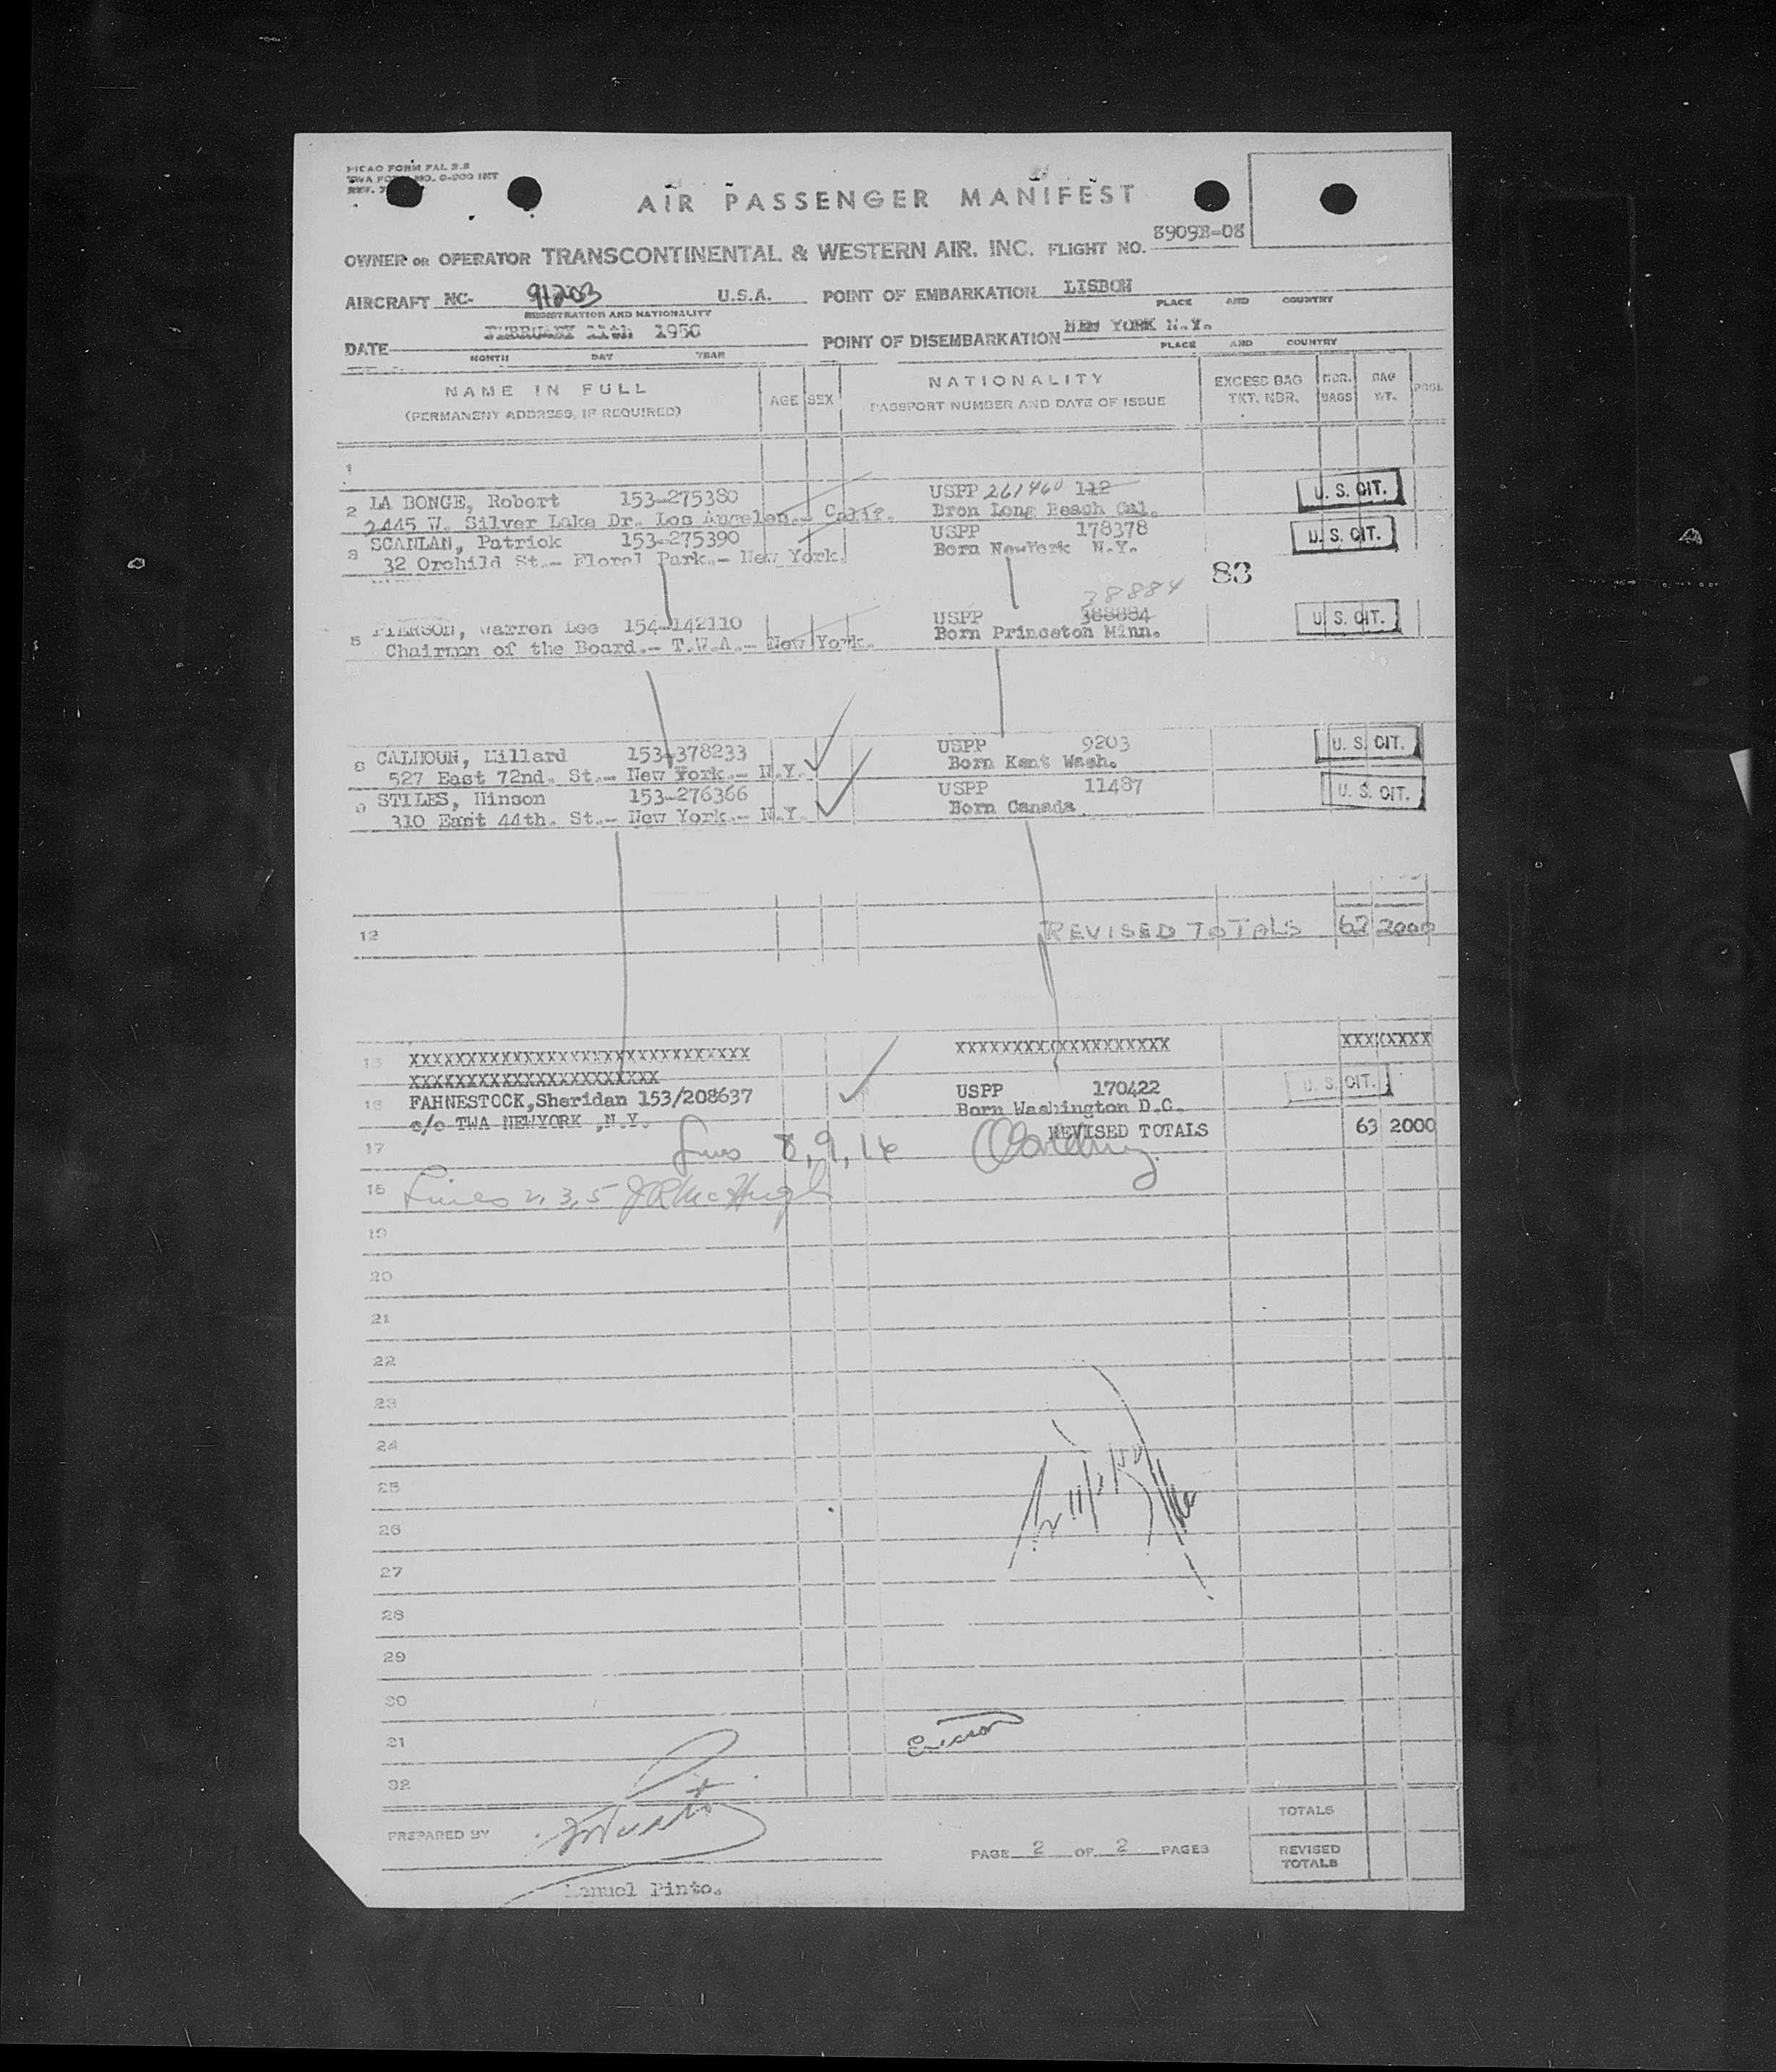 PICAO FORM FAL 2.2
TWA FORM NO. 0-200 INT
REV.
AIR PASSENGER MANIFEST
OWNER OR OPERATOR TRANSCONTINENTAL & WESTERN AIR, INC. FLIGHT NO. 8909B-08
AIRCRAFT NC- 91203 U.S.A. POINT OF EMBARKATION LISBON
REGISTRATION AND NATIONALITY PLACE AND COUNTRY
DATE FEBRUARY 11th 1950 POINT OF DISEMBARKATION NEW YORK N.Y.
MONTH DAY YEAR PLACE AND COUNTRY
NAME IN FULL AGE SEX NATIONALITY EXCESS BAG NBR. BAG POOL
(PERMANENT ADDRESS, IF REQUIRED) PASSPORT NUMBER AND DATE OF ISSUE TKT. NBR. BAGS WT.
1
2 LA BONGE, Robert 153-275380 USPP 261460 112 U. S. CIT.
2445 W. Silver Lake Dr. Los Angeles.- Calif. Bron Long Beach Cal.
3 SCANLAN, Patrick 153-275390 USPP 178378 U. S. CIT.
32 Orchild St.- Floral Park.- New York. Born NewYork N.Y.
83
38884
5 PIERSON, Warren Lee 154-142110 USPP 388884 U. S. CIT.
Chairman of the Board.- T.W.A.- New York. Born Princeton Minn.
8 CALHOUN, Millard 153-378233 USPP 9203 U. S. CIT.
527 East 72nd. St.- New York.- N.Y. Born Kent Wash.
9 STILES, Hinson 153-276366 USPP 11487 U. S. CIT.
310 East 44th. St.- New York.- N.Y. Born Canada.
12 REVISED TOTALS 62 2000
13 XXXXXXXXXXXXXXXXXXXXXXXXXXXXXX XXXXXXXXXXXXXXXXXXX XXXXXXXX
XXXXXXXXXXXXXXXXXXXXXX
16 FAHNESTOCK,Sheridan 153/208637 USPP 170422 U. S. CIT.
c/o TWA NEWYORK ,N.Y. Born Washington D.C.
REVISED TOTALS 63 2000
17 Lines 8, 9, 16
18 Lines 2, 3, 5 J R McHugh
19
20
21
22
23
24
25
26
27
28
29
30
31
32
TOTALS
PREPARED BY PAGE 2 OF 2 PAGES
REVISED TOTALS
Manuel Pinto.